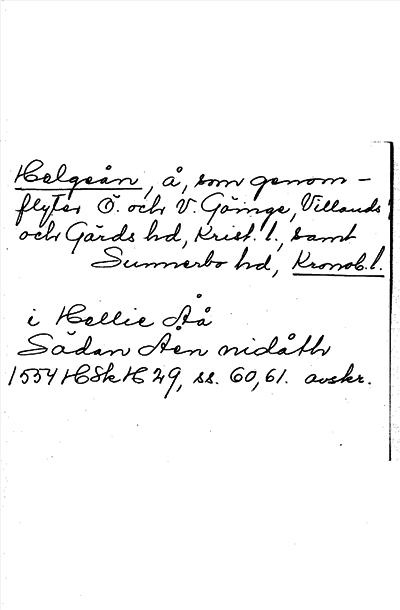 Helgeån, å, som genom-
flyter Ö. och V. Göinge, Villands
och Gärds hd, Krist. l., samt
Sunnerbo hd, Kronob. l.
i Hellie Aå
Sådan Aen nidåth
1554 HSkH 29, ss. 60, 61. avskr.